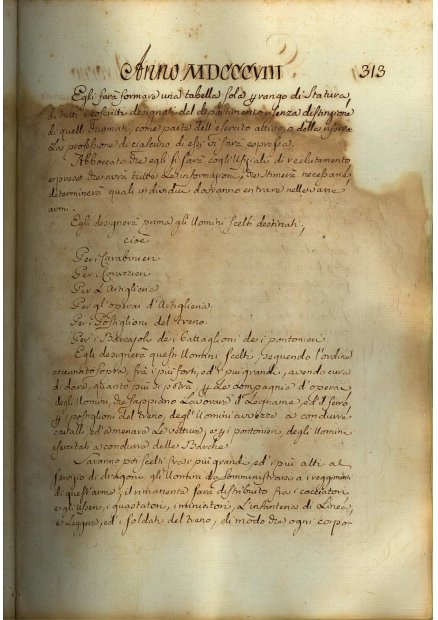 Anno MDCCCVIII 313
Egli farà formare una tabella sola p rango di Statura,
di tutti i coscritti designati del dipartimento, senza distinzione
di quelli chiamati, come parte dell'esercito attivo, o della riserva
La professione di ciascuno di essi vi sarà espressa.
Abboccato che egli si sarà cogl'Ufficiali di reclutamento
e presso che avrà tutte Le informazioni, che stimerà necessarie,
determinerà quali individui dovranno entrare nelle varie
armi.
Egli designerà prima gli Uomini scelti destinati,
cioè
Per i Carabinieri
Per i Corazzieri
Per L'Artiglieria
Per gl'operai d'Artiglieria
Per i Postiglioni del treno.
Per i Barcajoli de i battaglioni de i pontonieri
Egli designerà questi Uomini scelti, seguendo l'ordine
accennato sopra, frà i più forti, ed i più grandi, avendo cura
di dare, quanto più si potrà, p Le compagnie d'operai
degli Uomini, che sappiano Lavorare il Legname, ed il ferro,
p i postiglioni del treno, degl'Uomini avvezzi a condurre
cavalli, ed a menare Le vetture, e p i pontonieri, degli Uomini
esercitati a condurre delle Barche.
Saranno poi scelti fra i più grandi, ed i più atti al
servizio di dragoni, gli Uomini da somministrarsi a i reggimenti
di quest'arme; il rimanente sarà distribuito fra i cacciatori,
e gli Usseri, i guastatori, i minatori, L'infanteria di Linea,
e Leggiera, ed i soldati del treno, di modo che ogni corpo